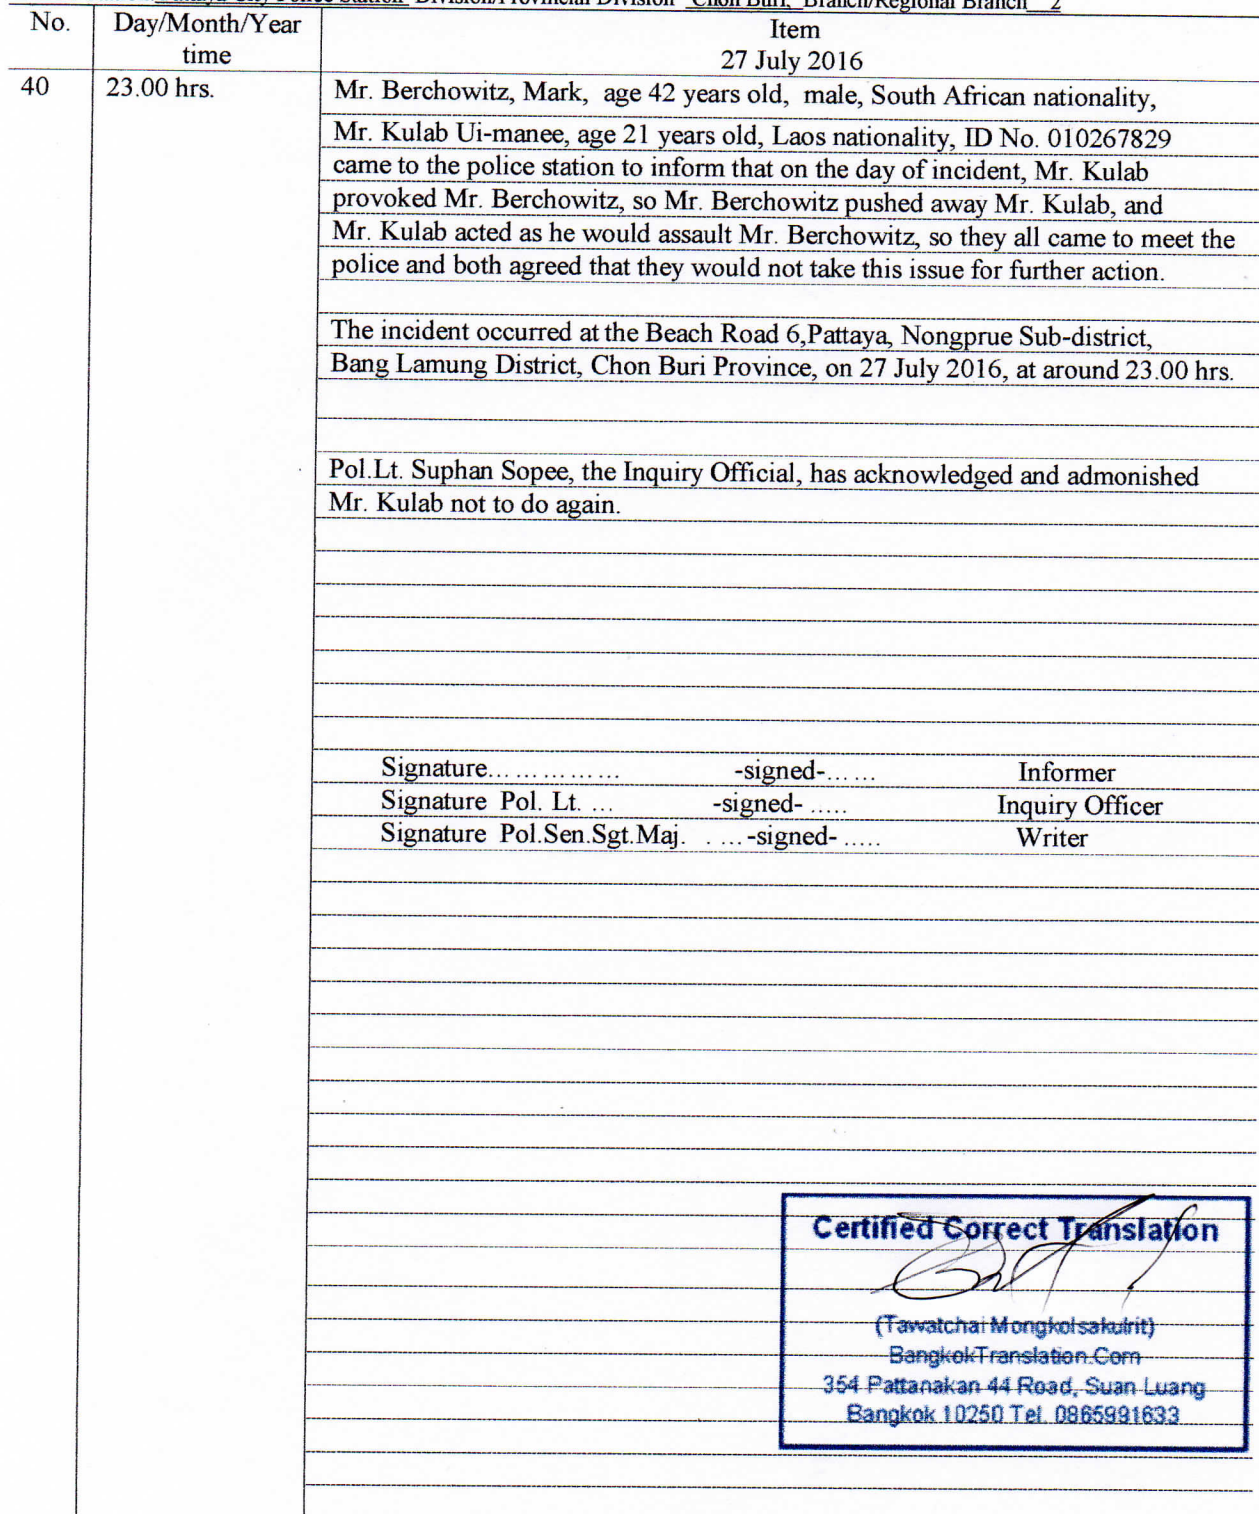 City Police Station Division/Provincial Division Chon Buri, Branch/Regional Branch 2
No. Day/Month/Year time Item
27 July 2016
40 23.00 hrs. Mr. Berchowitz, Mark, age 42 years old, male, South African nationality,
Mr. Kulab Ui-manee, age 21 years old, Laos nationality, ID No. 010267829
came to the police station to inform that on the day of incident, Mr. Kulab
provoked Mr. Berchowitz, so Mr. Berchowitz pushed away Mr. Kulab, and
Mr. Kulab acted as he would assault Mr. Berchowitz, so they all came to meet the
police and both agreed that they would not take this issue for further action.
The incident occurred at the Beach Road 6,Pattaya, Nongprue Sub-district,
Bang Lamung District, Chon Buri Province, on 27 July 2016, at around 23.00 hrs.
Pol.Lt. Suphan Sopee, the Inquiry Official, has acknowledged and admonished
Mr. Kulab not to do again.
Signature............... -signed-...... Informer
Signature Pol. Lt. ... -signed- ..... Inquiry Officer
Signature Pol.Sen.Sgt.Maj. . ...-signed- ..... Writer
Certified Correct Translation
(Tawatchai Mongkolsakulrit)
BangkokTranslation.Com
354 Pattanakan 44 Road, Suan Luang
Bangkok 10250 Tel. 0865991633